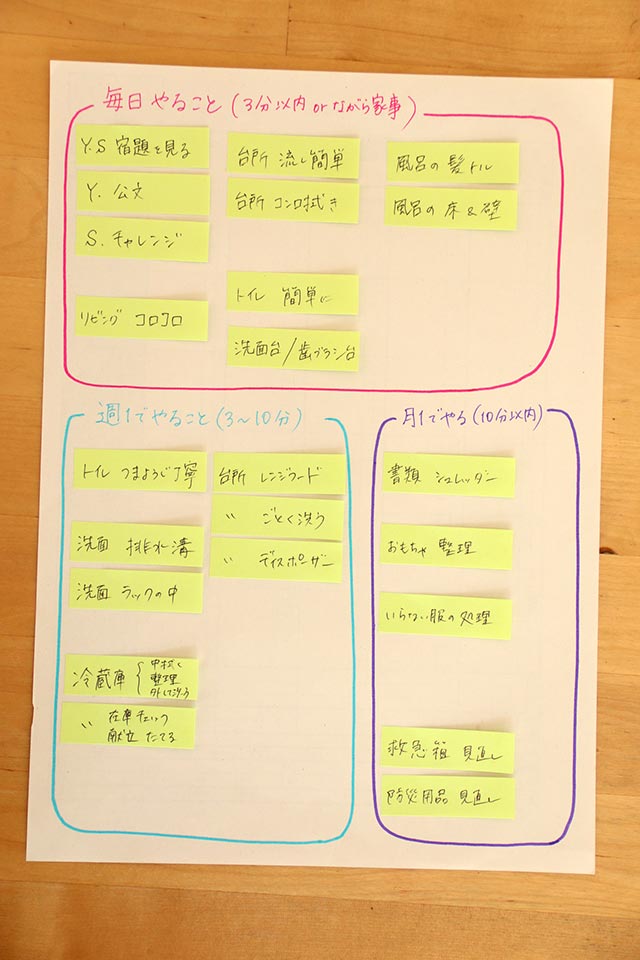 毎日やること(3分以内 or ながら家事)
Y.S 宿題を見る
Y. 公文
S. チャレンジ
リビング コロコロ
台所 流し簡単
台所 コンロ拭き
トイレ 簡単に
洗面台/歯ブラシ台
風呂の髪トル
風呂の床&壁
週1でやること(3~10分)
トイレ つまようじ丁寧
洗面 排水溝
洗面 ラックの中
冷蔵庫 { 中拭く
整理
外して洗う
〃 在庫チェック
献立たてる
台所 レンジフード
〃 ごとく洗う
〃 ディスポーザー
月1でやる(10分以内)
書類 シュレッダー
おもちゃ 整理
いらない服の処理
救急箱 見直し
防災用品 見直し